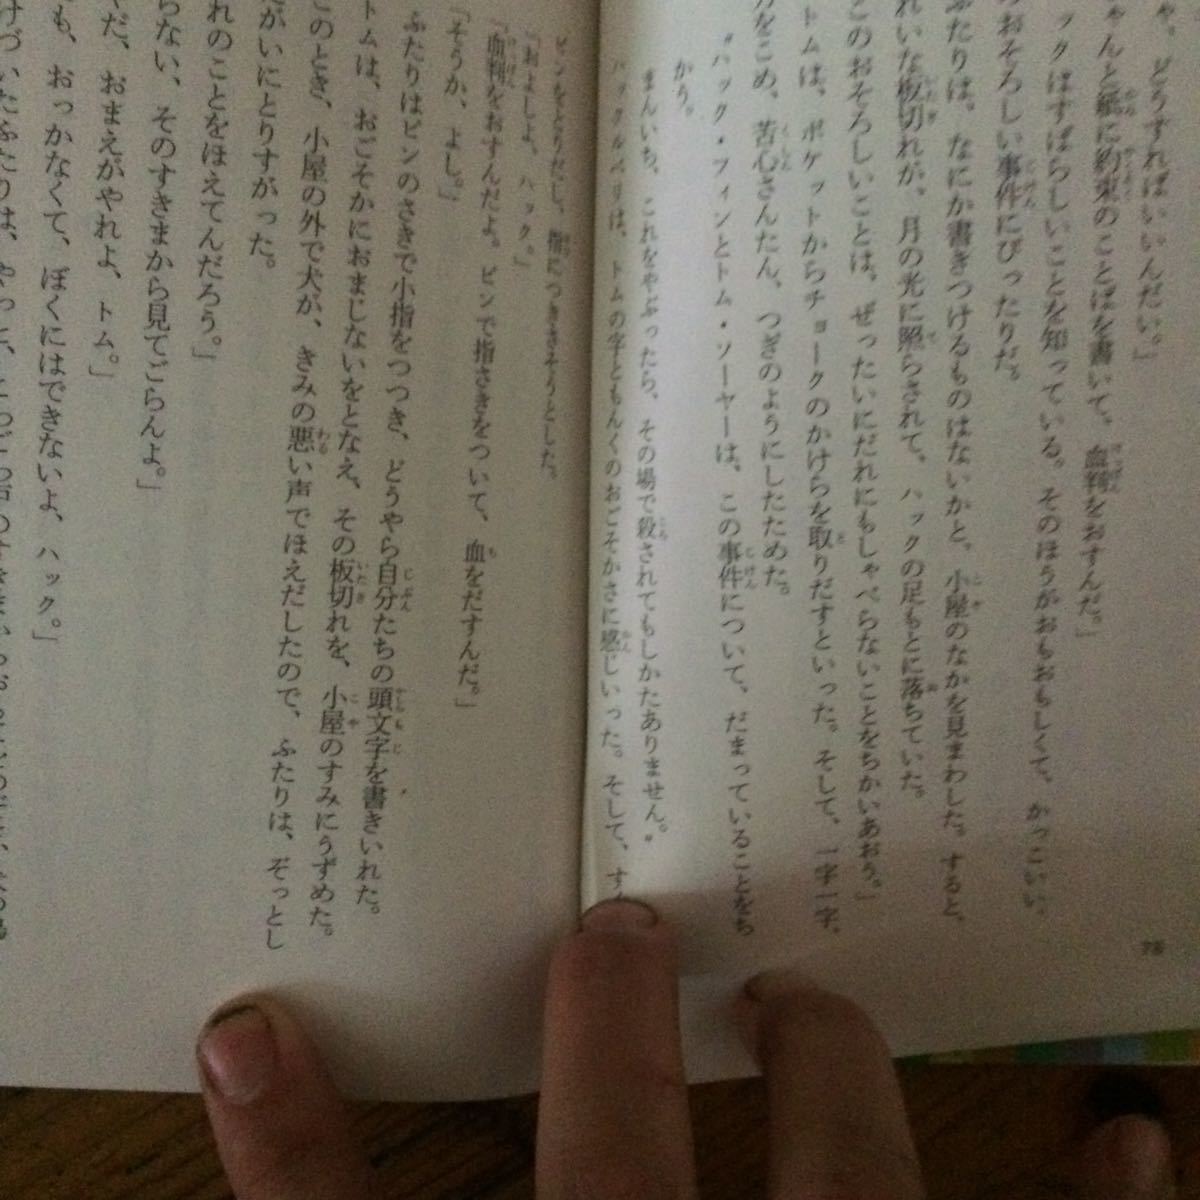 ゃ。どうすればいいんだい。」
ゃんと紙に約束のことばを書いて、血判をおすんだ。」
ックはすばらしいことを知っている。そのほうがおもおもしくて、かっこいい、
のおそろしい事件にぴったりだ。
ふたりは、なにか書きつけるものはないかと、小屋のなかを見まわした。すると、
れいな板切れが、月の光に照らされて、ハックの足もとに落ちていた。
このおそろしいことは、ぜったいにだれにもしゃべらないことをちかいあおう。」
トムは、ポケットからチョークのかけらを取りだすといった。そして、一字一字、
力をこめ、苦心さんたん、つぎのようにしたためた。
〝ハック・フィンとトム・ソーヤーは、この事件について、だまっていることをち
かう。
まんいち、これをやぶったら、その場で殺されてもしかたありません。〟
ハックルベリは、トムの字ともんくのおごそかさに感じいった。そして、す
78
ピンをとりだし、指につきさそうとした。
「およしよ、ハック。」
「血判をおすんだよ。ピンで指さきをついて、血をだすんだ。」
「そうか、よし。」
ふたりはピンのさきで小指をつつき、どうやら自分たちの頭文字を書きいれた。
トムは、おごそかにおまじないをとなえ、その板切れを、小屋のすみにうずめた。
このとき、小屋の外で犬が、きみの悪い声でほえだしたので、ふたりは、ぞっとし
がいにとりすがった。
れのことをほえてんだろう。」
らない、そのすきまから見てごらんよ。」
だ、おまえがやれよ、トム。」
も、おっかなくて、ぼくにはできないよ、ハック。」
けづいたふたりは、やっと、